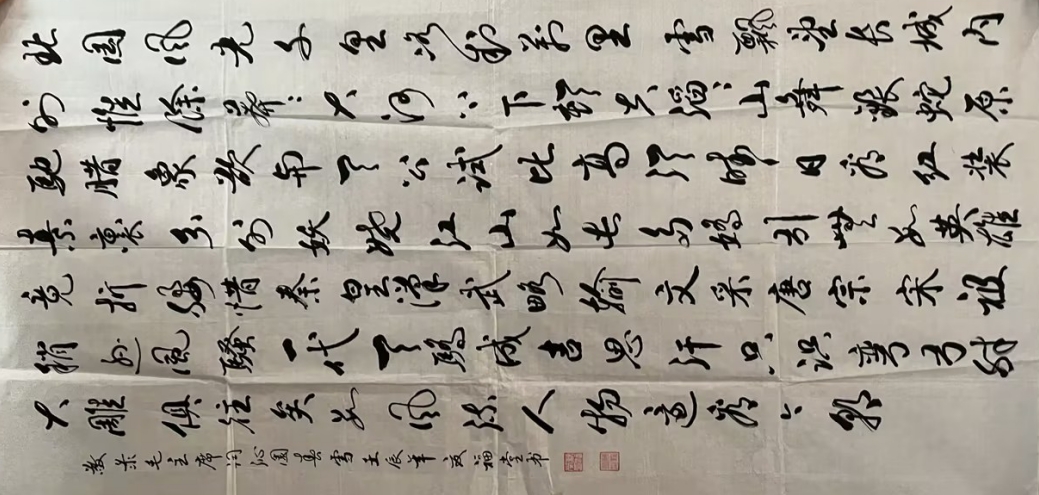 北国风光千里冰封万里雪飘望长城内
外惟馀莽莽大河上下顿失滔滔山舞银蛇原
驰腊象欲与天公试比高须晴日看红装
素裹分外妖娆江山如此多娇引无数英雄
竞折腰惜秦皇汉武略输文采唐宗宋祖
稍逊风骚一代天骄成吉思汗只识弯弓射
大雕俱往矣数风流人物还看今朝
敬录毛主席词沁园春雪壬辰年福堂书